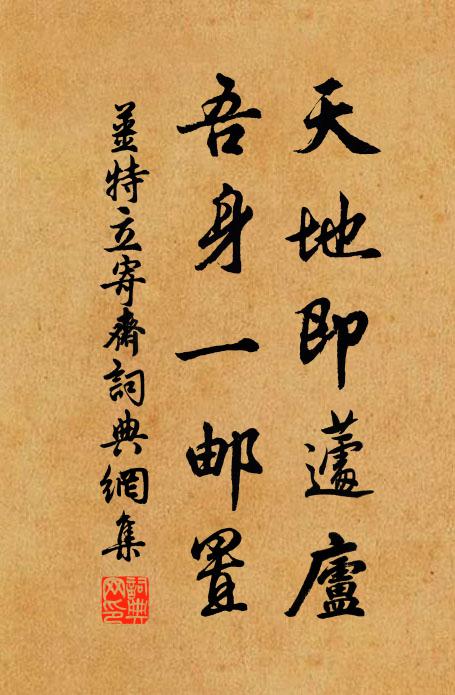 天地即蘧廬
吾身一邮置
薑特立寄齋詞典網集
詞典网印